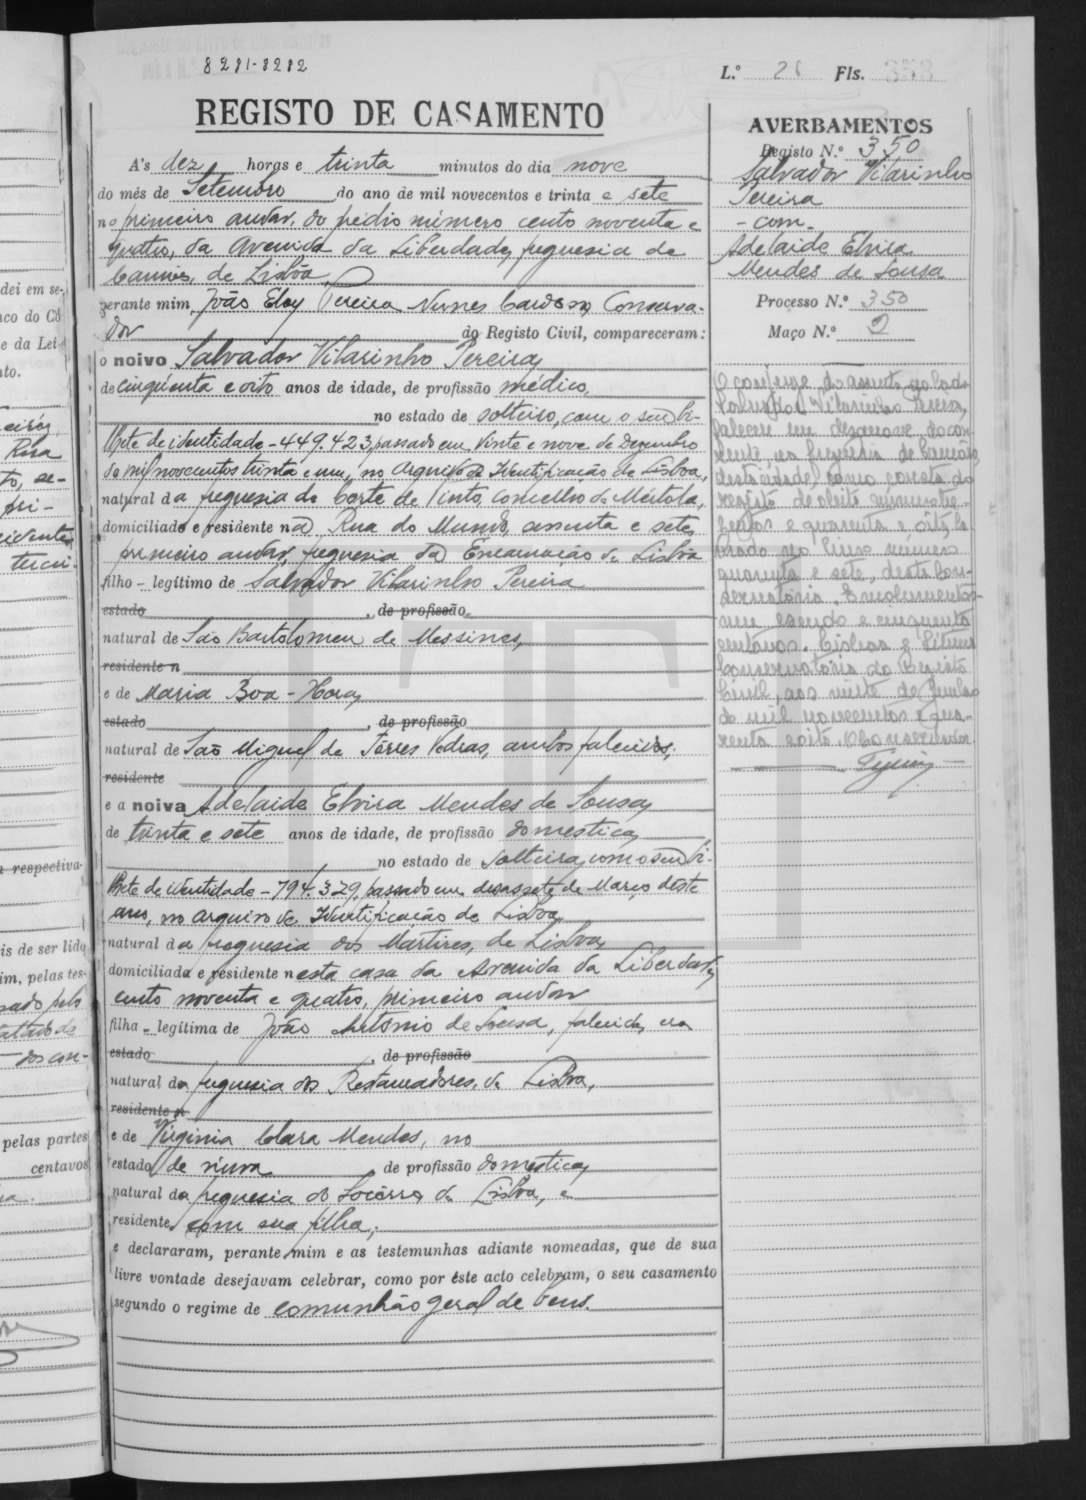 8211-8212
L.º 26 Fls. 353
REGISTO DE CASAMENTO
A's dez horas e trinta minutos do dia nove
do mês de Setembro do ano de mil novecentos e trinta e sete
no primeiro andar, do prédio número cento noventa e
quatro, da Avenida da Liberdade, freguesia de
Camões, de Lisbôa
perante mim, João Eloy Pereira Nunes Cardoso, Conserva-
dor do Registo Civil, compareceram:
o noivo Salvador Vilarinho Pereira,
de cinqüenta e oito anos de idade, de profissão médico,
no estado de solteiro, com o seu bi-
lhete de identidade - 449.423, passado em vinte e nove de Dezembro
de mil novecentos trinta e um, no Arquivo de Identificação de Lisboa,
natural da freguesia de Corte do Pinto, concelho de Mértola,
domiciliado e residente na Rua do Mundo, cinquenta e sete,
primeiro andar, freguesia da Encarnação de Lisbôa
filho - legítimo de Salvador Vilarinho Pereira
estado, de profissão
natural de São Bartolomeu de Messines,
residente n
e de Maria Boa-Hora,
estado, de profissão
natural de São Miguel de Torres Vedras, ambos falecidos;
residente
e a noiva Adelaide Elvira Mendes de Sousa,
de trinta e sete anos de idade, de profissão doméstica,
no estado de solteira, com o seu bi-
lhete de identidade - 794.329, passado em dezassete de Março, deste
ano, no arquivo de Identificação de Lisboa,
natural da freguesia dos Martires, de Lisboa,
domiciliada e residente nesta casa da Avenida da Liberdade,
cento noventa e quatro, primeiro andar
filha - legítima de João António de Sousa, falecido, era
estado, de profissão
natural da freguesia dos Restauradores, de Lisboa,
residente n
e de Virginia Clara Mendes, no
estado de viuva, de profissão doméstica,
natural da freguesia do Socôrro, de Lisboa, e
residente com sua filha;
e declararam, perante mim e as testemunhas adiante nomeadas, que de sua
livre vontade desejavam celebrar, como por êste acto celebram, o seu casamento
segundo o regime de comunhão geral de bens.
AVERBAMENTOS
Registo N.º 350
Salvador Vilarinho
Pereira
- com -
Adelaide Elvira
Mendes de Sousa
Processo N.º 350
Maço N.º 2
O conjuge do assento ao lado
Salvador Vilarinho Pereira,
faleceu em dezanove do cor-
rente, na freguesia de Camões
desta cidade, como consta do
registo de obito quinhentos
e quarenta e oito, la-
vrado no livro número
quarenta e sete, desta Con-
servatória. Emolumentos
um escudo e cinquenta
centavos. Lisboa e Sétima
Conservatória do Registo
Civil, aos vinte de Junho
de mil novecentos e qua-
renta e oito. O Conservador
dei em se-
e da Lei
Rua
respectiva-
is de ser lida
im, pelas tes-
pelas partes
centavos